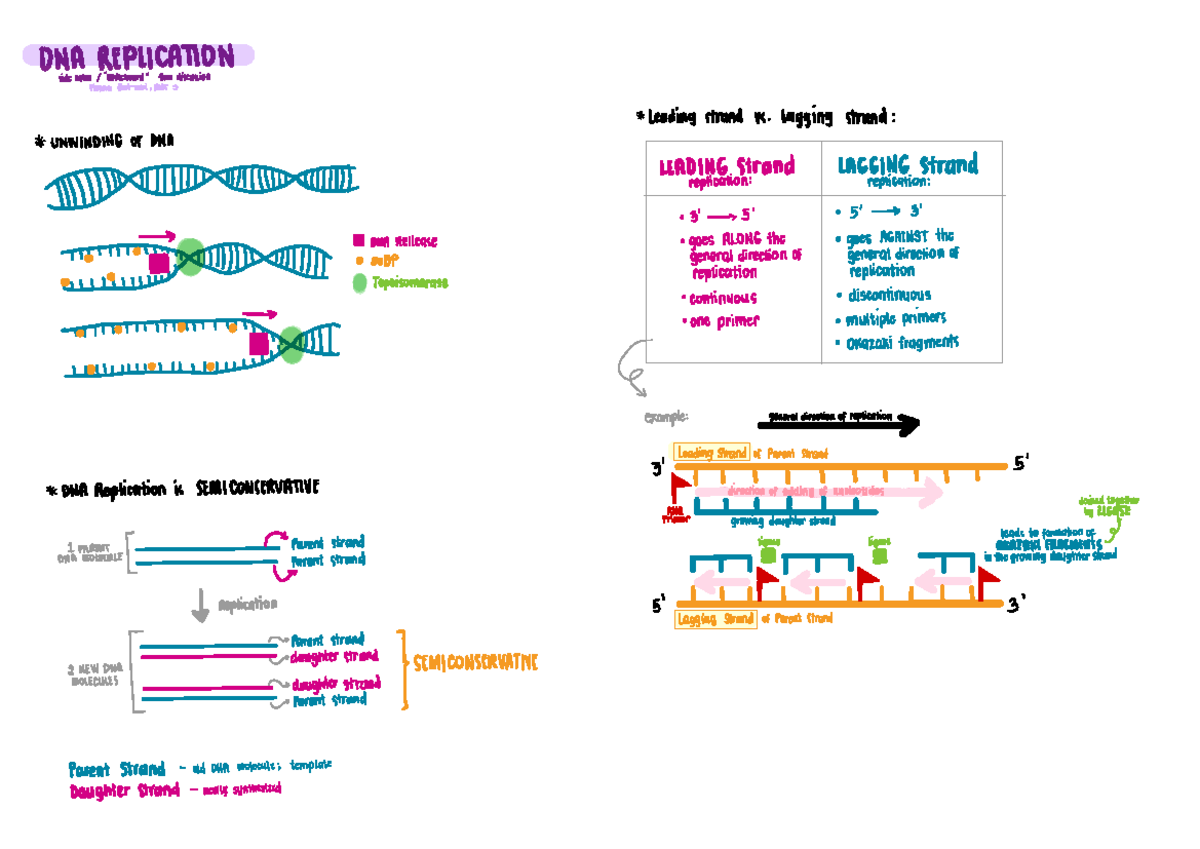 DNA REPLICATION
* UNWINDING OF DNA
DNA Helicase
SSBP
Topoisomerase
* DNA Replication is SEMICONSERVATIVE
1 PARENT
DNA MOLECULE
Parent strand
Parent strand
Replication
2 NEW DNA
MOLECULES
Parent strand
daughter strand
daughter strand
Parent strand
SEMICONSERVATIVE
Parent Strand - old DNA molecule; template
Daughter Strand - newly synthesized
* Leading strand vs. Lagging strand:
LEADING Strand
replication:
• 3' → 5'
• goes ALONG the
general direction of
replication
• continuous
• one primer
LAGGING Strand
replication:
• 5' → 3'
• goes AGAINST the
general direction of
replication
• discontinuous
• multiple primers
• Okazaki fragments
example:
general direction of replication
Leading Strand of Parent Strand
3'
5'
direction of adding of nucleotides
RNA
Primer
growing daughter strand
joined together
by LIGASE
leads to formation of
OKAZAKI FRAGMENTS
in the growing daughter strand
ligase
ligase
5'
3'
Lagging Strand of Parent Strand